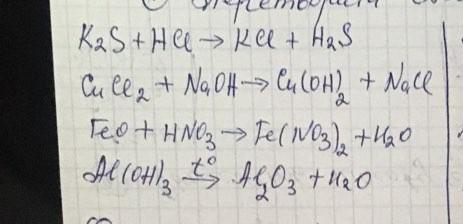 K₂S + HCl → KCl + H₂S
CuCl₂ + NaOH → Cu(OH)₂ + NaCl
FeO + HNO₃ → Fe(NO₃)₂ + H₂O
Al(OH)₃ t°→ Al₂O₃ + H₂O